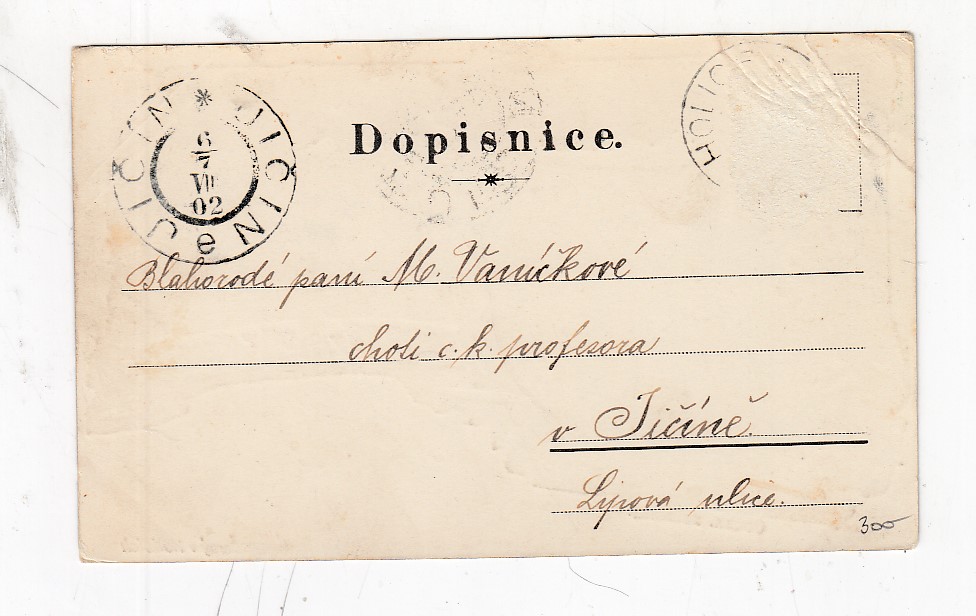 JIČIN * JIČIN e
6
VII
02
HOLIC
Dopisnice.
Blahorodé paní M. Vaníčkové
choti c. k. profesora
v Jičíně.
Lipová ulice.
300